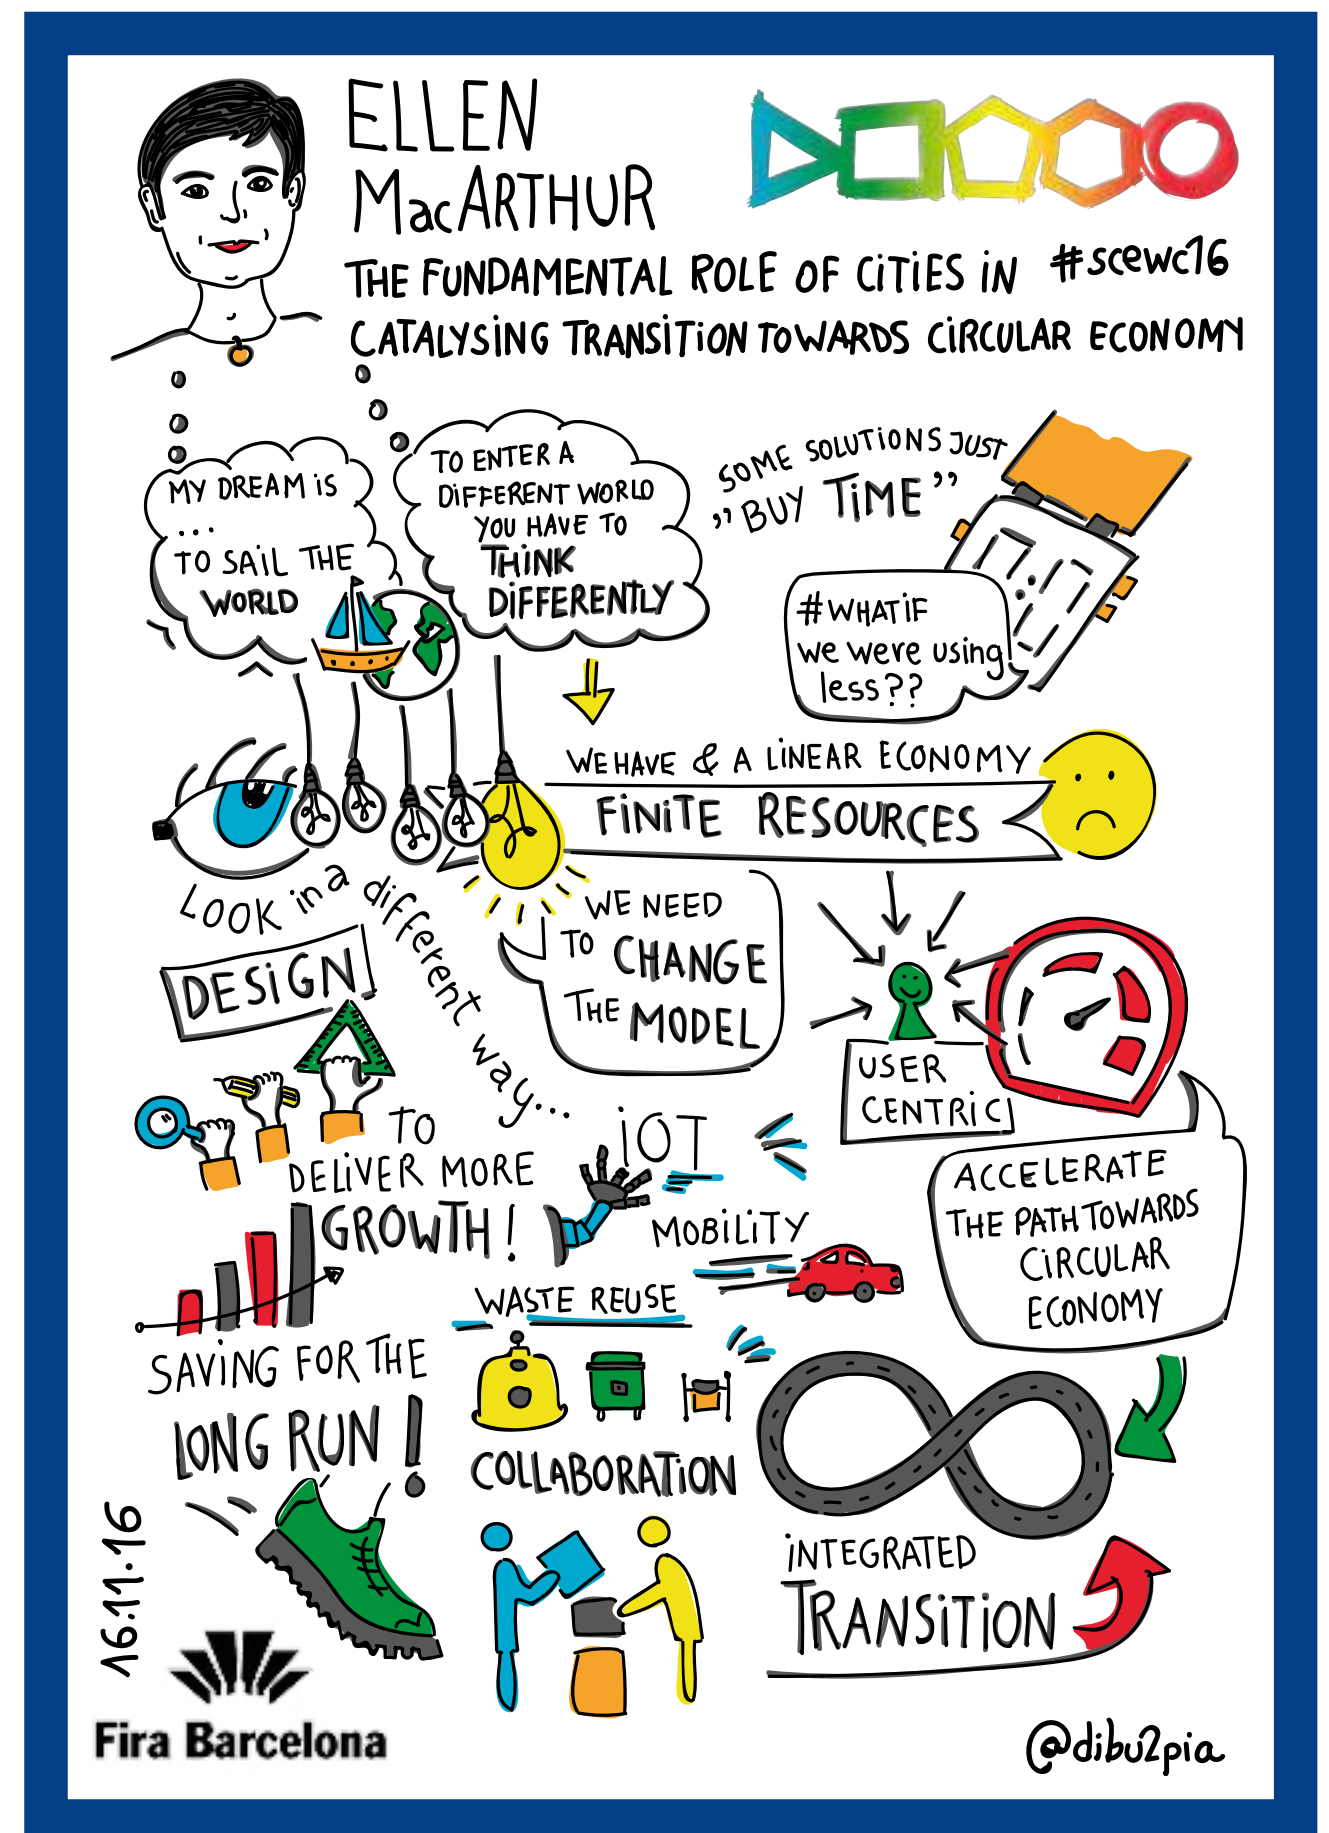 ELLEN
MacARTHUR
THE FUNDAMENTAL ROLE OF CITIES IN
#scewc16
CATALYSING TRANSITION TOWARDS CIRCULAR ECONOMY
MY DREAM IS
...
TO SAIL THE
WORLD
TO ENTER A
DIFFERENT WORLD
YOU HAVE TO
THINK
DIFFERENTLY
SOME SOLUTIONS JUST
"BUY TIME"
#WHATIF
we were using
less??
WE HAVE & A LINEAR ECONOMY
FINITE RESOURCES
LOOK in a different way...
WE NEED
TO CHANGE
THE MODEL
DESIGN
USER
CENTRIC
TO
DELIVER MORE
GROWTH!
IOT
MOBILITY
ACCELERATE
THE PATH TOWARDS
CIRCULAR
ECONOMY
WASTE REUSE
SAVING FOR THE
LONG RUN!
COLLABORATION
INTEGRATED
TRANSITION
16.11.16
Fira Barcelona
@dibu2pia